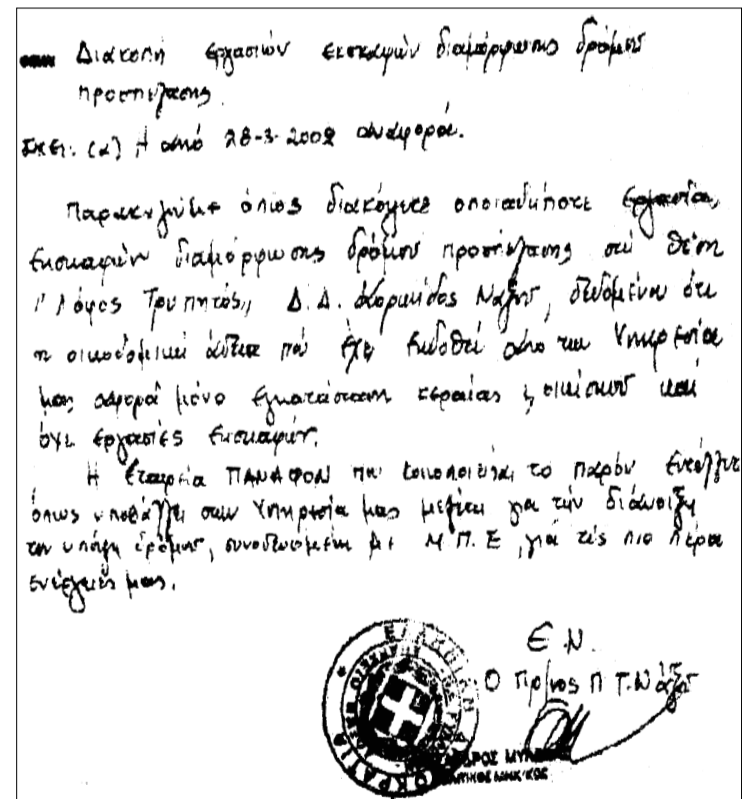 Διακοπή εργασιών εκσκαφών διαμόρφωσης δρόμου
προσπέλασης
Σχετ: (α) Η από 28-3-2002 αναφορά.
Παρακαλούμε όπως διακόψετε οποιαδήποτε εργασία
εκσκαφών διαμόρφωσης δρόμου προσπέλασης στη θέση
"Λόφος Τρυπητός" Δ.Δ. Κορωνίδος Νάξου, δεδομένου ότι
η οικοδομική άδεια που έχει εκδοθεί από την Υπηρεσία
μας αφορά μόνο εγκατάσταση κεραίας & οικίσκου και
όχι εργασίες εκσκαφών.
Η Εταιρεία ΠΑΝΑΦΟΝ που κοινοποιείται το παρόν
όπως υποβάλλει στην Υπηρεσία μας μελέτη για την διάνοιξη
την υπόψη δρόμου, συνοδευομένη με Μ.Π.Ε, για τις πιο πέρα
ενέργειές μας.
Ε.Ν.
Ο Πρ/νος Π.Τ. Νάξου